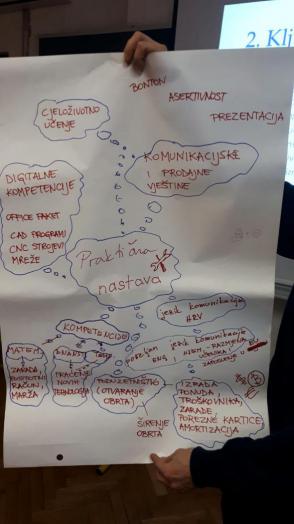 2. Klj
BONTON
ASERTIVNOST
PREZENTACIJA
CJELOŽIVOTNO
UČENJE
KOMUNIKACIJSKE
I PRODAJNE
VJEŠTINE
DIGITALNE
KOMPETENCIJE
OFFICE PAKET
CAD PROGRAMI
CNC STROJEVI
MREŽE
Praktična
nastava
jezik komunikacija
HRV
KOMPETENCIJE
MATEM.
ZARADA,
POSTOTNI
RAČUN,
MARŽA
ZNANJ
PRAĆENJE
NOVIH
TEHNOLOGIJA
jezik komunikacije
poželjan ENG I NJEM, RAZMJENA
UČENIKA
PODUZETNIŠTVO
(OTVARANJE
OBRTA)
ŠIRENJE
OBRTA
IZRADA
PONUDA,
TROŠKOVNIKA,
ZARADE,
POREZNE KARTICE,
AMORTIZACIJA